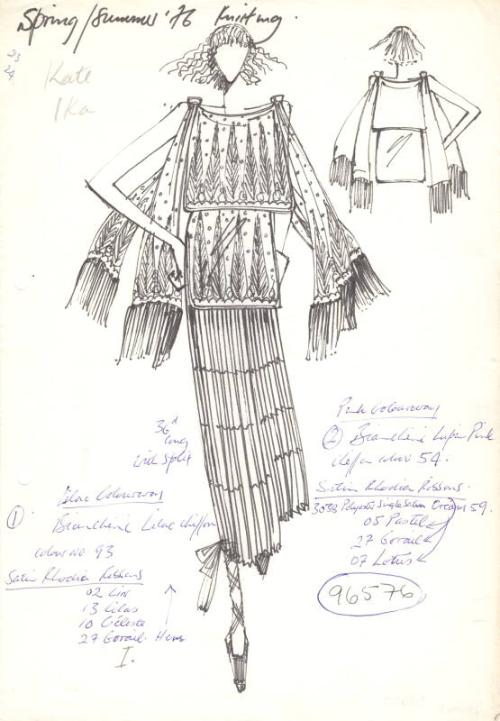 Spring/Summer '76 Knitting.
23
24
Kate
Ika
36"
long
with split
Lilac Colourway
①
Bianchini Lilac chiffon
colour no 93
Satin Rhodia Ribbons
02 Lin
13 Lilas
10 Céleste
27 Corail. Hem
I.
Pink Colourway
② Bianchini Lupin Pink
chiffon colour 54.
Satin Rhodia Ribbons.
3033 Polyester Single Satin Cream 59.
05 Pastel
27 Corail
07 Lotus
96576